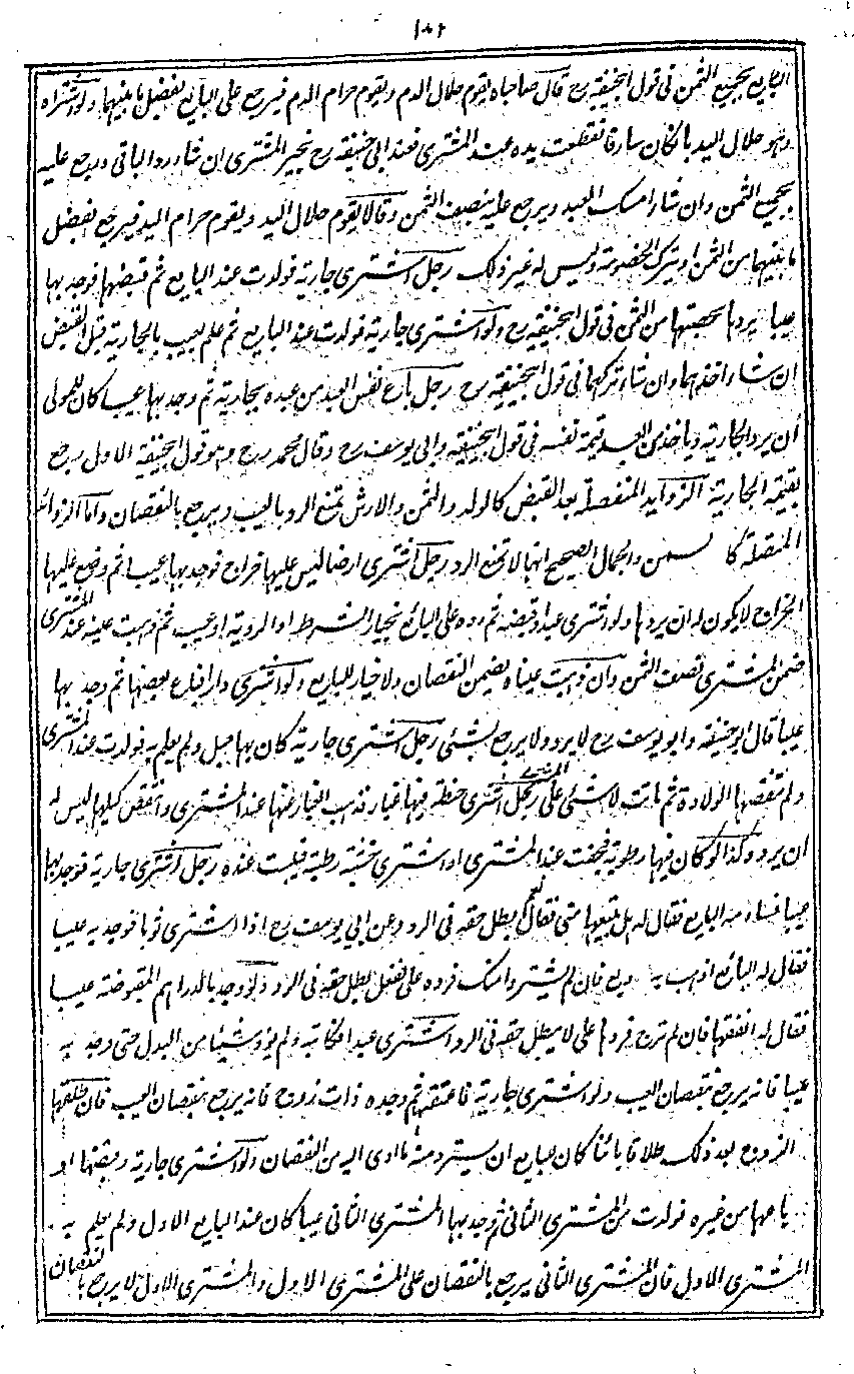 ١٠٢
البايع بجميع الثمن فى قول ابيحنيفة رح قال صاحباه يقوم حلال الدم ويقوم حرام الدم فيرجع على البايع بفضل ما بينهما ولو اشتراه
وهو حلال اليد بان كان سارقا فقطعت يده عند المشترى فعند ابى حنيفة رح يخير المشترى ان شاء رد الباقى ويرجع عليه
بجميع الثمن وان شاء امسك العبد ويرجع عليه بنصف الثمن وقالا يقوم حلال اليد ويقوم حرام اليد فيرجع بفضل
ما بينهما من الثمن او يترك الخصومة وليس له غير ذلك رجل اشترى جارية فولدت عند البايع ثم قبضها فوجد بها
عيبا يردها بحصتها من الثمن فى قول ابيحنيفة رح ولو اشترى جارية فولدت عند البايع ثم علم بعيب بالجارية قبل القبض
ان شاء اخذهما وان شاء تركهما فى قول ابيحنيفة رح رجل باع نفس العبد من عبده بجارية ثم وجد بها عيبا كان للمولى
ان يرد الجارية وياخذ من العبد قيمة نفسه فى قول ابيحنيفة وابى يوسف رح وقال محمد رح وهو قول ابيحنيفة الاول يرجع
بقيمة الجارية الزوايد المنفصلة بعد القبض كالولد والثمن والارش تمنع الرد بالعيب ويرجع بالنقصان واما الزوائد
المتصلة كا لسمن والجمال الصحيح انها لا تمنع الرد رجل اشترى ارضا ليس عليها خراج فوجد بها عيبا ثم وضع عليها
الخراج لا يكون له ان يردها ولو اشترى عبدا وقبضه ثم رده على البائع بخيار الشرط او الروية او عيب ثم ذهبت عينه عند المشترى
ضمن المشترى نصف الثمن وان ذهبت عيناه يضمن النقصان ولا خيار للبايع ولو اشترى دارا فباع بعضها ثم وجد بها
عيبا قال ابو حنيفة وابو يوسف رح لا يرد ولا يرجع بشئى رجل اشترى جارية كان بها حبل ولم يعلم به فولدت عند المشترى
ولم تنقصها الولادة ثم ماتت لا شئى على رجل اشترى حنطة فيها غبار فذهب الغبار عنها عند المشترى وانتقص كيلها ليس له
ان يرد وكذا لو كان فيها رطوبة فجفت عند المشترى او اشترى خشبة رطبة فيبست عنده رجل اشترى جارية فوجد بها
عيبا فساومه البايع فقال له هل تبيعها منى فقال نعم بطل حقه فى الرد وعن ابى يوسف رح اذا اشترى ثوبا فوجد به عيبا
فقال له البائع اذهب به وبع فان لم يشتر وامنك فرده على ففعل بطل حقه فى الرد ولو وجد بالدراهم المقبوضة عيبا
فقال له انفقها فان لم ترج فردها على لا يبطل حقه فى الرد اشترى عبدا فكاتبه ولم يؤد شيئا من البدل حتى وجد به
عيبا فانه يرجع بنقصان العيب ولو اشترى جارية فاعتقها ثم وجده ذات زوج فانه يرجع بنقصان العيب فان طلقها
الزوج بعد ذلك طلاقا بائنا كان للبايع ان يسترد منه ما ادى اليه من النقصان ولو اشترى جارية وقبضها او
باعها من غيره فولدت من المشترى الثانى ثم وجد بها المشترى الثانى عيبا كان عند البايع الاول ولم يعلم به
المشترى الاول فان المشترى الثانى يرجع بالنقصان على المشترى الاول والمشترى الاول لا يرجع بالنقصان